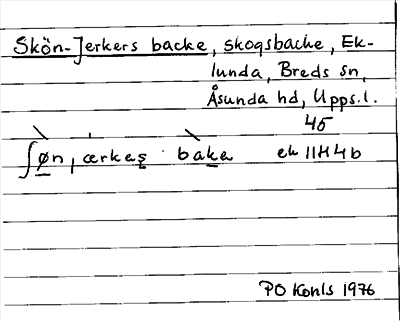 Skön-Jerkers backe, skogsbacke, Ek-
lunda, Breds sn,
Åsunda hd, Upps.l.
45
ʃøn, ærkeş bake ek 11H4b
PO Konls 1976